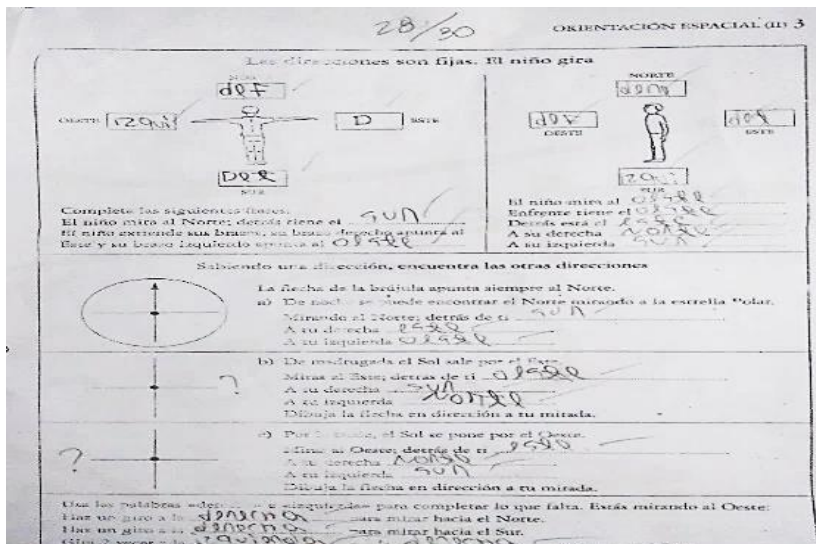 28/30
ORIENTACIÓN ESPACIAL (II) 3
Las direcciones son fijas. El niño gira
NORTE
OESTE
D ESTE
SUR
Completa las siguientes frases:
El niño mira al Norte; detrás tiene el sur
El niño extiende sus brazos; su brazo derecho apunta al
Este y su brazo izquierdo apunta al oeste
NORTE
OESTE
ESTE
SUR
El niño mira al oeste
Enfrente tiene el oeste
Detrás está el este
A su derecha norte
A su izquierda sur
Sabiendo una dirección, encuentra las otras direcciones
La flecha de la brújula apunta siempre al Norte.
a) De noche se puede encontrar el Norte mirando a la estrella Polar.
Mirando al Norte; detrás de ti sur
A tu derecha este
A tu izquierda oeste
b) De madrugada el Sol sale por el Este.
Miras al Este; detrás de ti oeste
A tu derecha sur
A tu izquierda norte
Dibuja la flecha en dirección a tu mirada.
?
c) Por la tarde, el Sol se pone por el Oeste.
Miras al Oeste; detrás de ti este
A tu derecha norte
A tu izquierda sur
Dibuja la flecha en dirección a tu mirada.
?
Usa las palabras «derecha» e «izquierda» para completar lo que falta. Estás mirando al Oeste:
Haz un giro a la derecha para mirar hacia el Norte.
Haz un giro a la derecha para mirar hacia el Sur.
Gira 2 veces a la izquierda o derecha